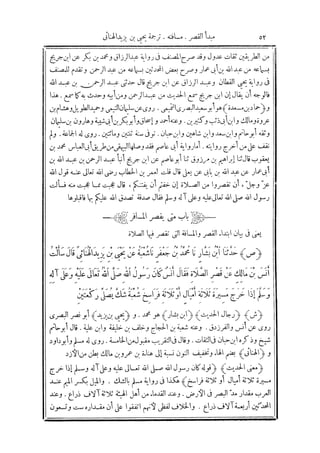 ٥٢ مبدأ القصر . مسافته . ترجمة يحيى بن يزيد الهنائى
من الطريقين ثقات عدول وقد صرح المصنف فى رواية عبد الرزاق ومحمد بن بكر عن ابن جريج
بسماعه من عبد الله بن أبى عمار وصرح بعض المحدثين بسماعه من عبد الرحمن وتقدم للمصنف
فى رواية يحيى القطان وعبد الرزاق عن ابن جريج قال حدثنى عبد الرحمن بن عبد الله
فالوجه أن يقال إن ابن جريج سمع الحديث من عبد الرحمن ومن أبيه وحدث به كما سمع . هذا
و﴿حماد بن مسعدة﴾ هو أبو سعيد البصرى التميمى . روى عن سليمان التيمى وحميد الطويل وهشام بن
عروة ومالك وابن أبى ذئب وكثيرين . وعنه أحمد وإسحاق وأبو بكر بن أبى شيبة وهارون بن سليمان
وثقه أبو حاتم وابن سعد وابن شاهين وابن حبان . توفى سنة ثنتين ومائتين . روى له الجماعة . ولم
نقف على من أخرج روايته . أما رواية أبى عاصم فقد وصلها البيهقى من طريق أبى العباس محمد بن
يعقوب قال ثنا إبراهيم بن مرزوق ثنا أبو عاصم عن ابن جريج أنبأ عبد الرحمن بن عبد الله بن
أبى عمار عن عبد الله بن بابى عن يعلى قال قلت لعمر بن الخطاب رضى الله تعالى عنه قول الله
عز وجل ، أن تقصروا من الصلاة إن خفتم أن يفتنكم ، قال عجبت مما عجبت منه فسألت
رسول الله صلى الله تعالى عليه وعلى آله وسلم فقال صدقة تصدق الله عليكم بها فاقبلوها
باب متى يقصر المسافر
يعنى فى بيان ابتداء القصر والمسافة التى تقصر فيها الصلاة
﴿ص﴾ حَدَّثَنَا ابْنُ بَشَّارٍ نَا مُحَمَّدُ بْنُ جَعْفَرٍ نَا شُعْبَةُ عَنْ يَحْيَى بْنِ يَزِيدَ الْهُنَائِىِّ قَالَ سَأَلْتُ
أَنَسَ بْنَ مَالِكٍ عَنْ قَصْرِ الصَّلَاةِ فَقَالَ أَنَسٌ كَانَ رَسُولُ اللهِ صَلَّى اللهُ تَعَالَى عَلَيْهِ وَعَلَى آلِهِ
وَسَلَّمَ إِذَا خَرَجَ مَسِيرَةَ ثَلَاثَةِ أَمْيَالٍ أَوْ ثَلَاثَةِ فَرَاسِخَ شُعْبَةُ شَكَّ يُصَلِّى رَكْعَتَيْنِ
﴿ش﴾ ﴿رجال الحديث﴾ ﴿ابن بشار﴾ هو محمد . و ﴿يحيى بن يزيد﴾ أبو نصر البصرى
روى عن أنس والفرزدق . وعنه شعبة بن الحجاج وخلف بن خليفة وابن علية . قال أبو حاتم
شيخ وذكره ابن حبان فى الثقات . وقال فى التقريب مقبول من الخامسة . روى له مسلم وأبو داود
و ﴿الهنائى﴾ بضم الهاء وتخفيف النون نسبة إلى هناءة بن عمرو بن مالك بطن من الأزد
﴿معنى الحديث﴾ ﴿قوله كان رسول الله صلى الله تعالى عليه وعلى آله وسلم إذا خرج
مسيرة ثلاثة أميال أو ثلاثة فراسخ﴾ هكذا فى رواية مسلم بالشك . والميل بكسر الميم عند
العرب مقدار مد البصر فى الأرض . وعند القدماء من أهل الهيئة ثلاثة آلاف ذراع . وعند
المحدثين أربعة آلاف ذراع . والخلاف لفظى لأنهم اتفقوا على أن مقداره ست وتسعون